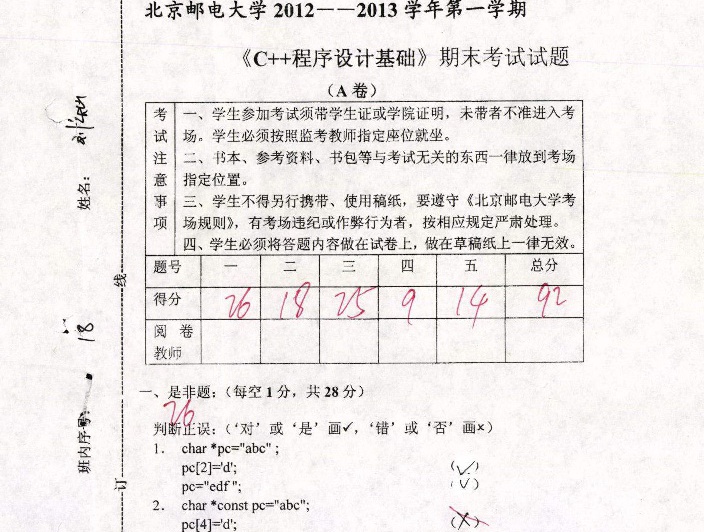 北京邮电大学 2012——2013 学年第一学期
《C++程序设计基础》期末考试试题
（A 卷）
考试注意事项
一、学生参加考试须带学生证或学院证明，未带者不准进入考
场。学生必须按照监考教师指定座位就坐。
二、书本、参考资料、书包等与考试无关的东西一律放到考场
指定位置。
三、学生不得另行携带、使用稿纸，要遵守《北京邮电大学考
场规则》，有考场违纪或作弊行为者，按相应规定严肃处理。
四、学生必须将答题内容做在试卷上，做在草稿纸上一律无效。
题号 一 二 三 四 五 总分
得分 26 18 25 9 14 92
阅卷
教师
一、是非题：（每空 1 分，共 28 分）
26
判断正误：（‘对’或‘是’画✓，‘错’或‘否’画×）
1. char *pc="abc" ;
pc[2]='d'; (✓)
pc="edf "; (✓)
2. char *const pc="abc";
pc[4]='d'; (×)
姓名：
线
班内序号： 18
订